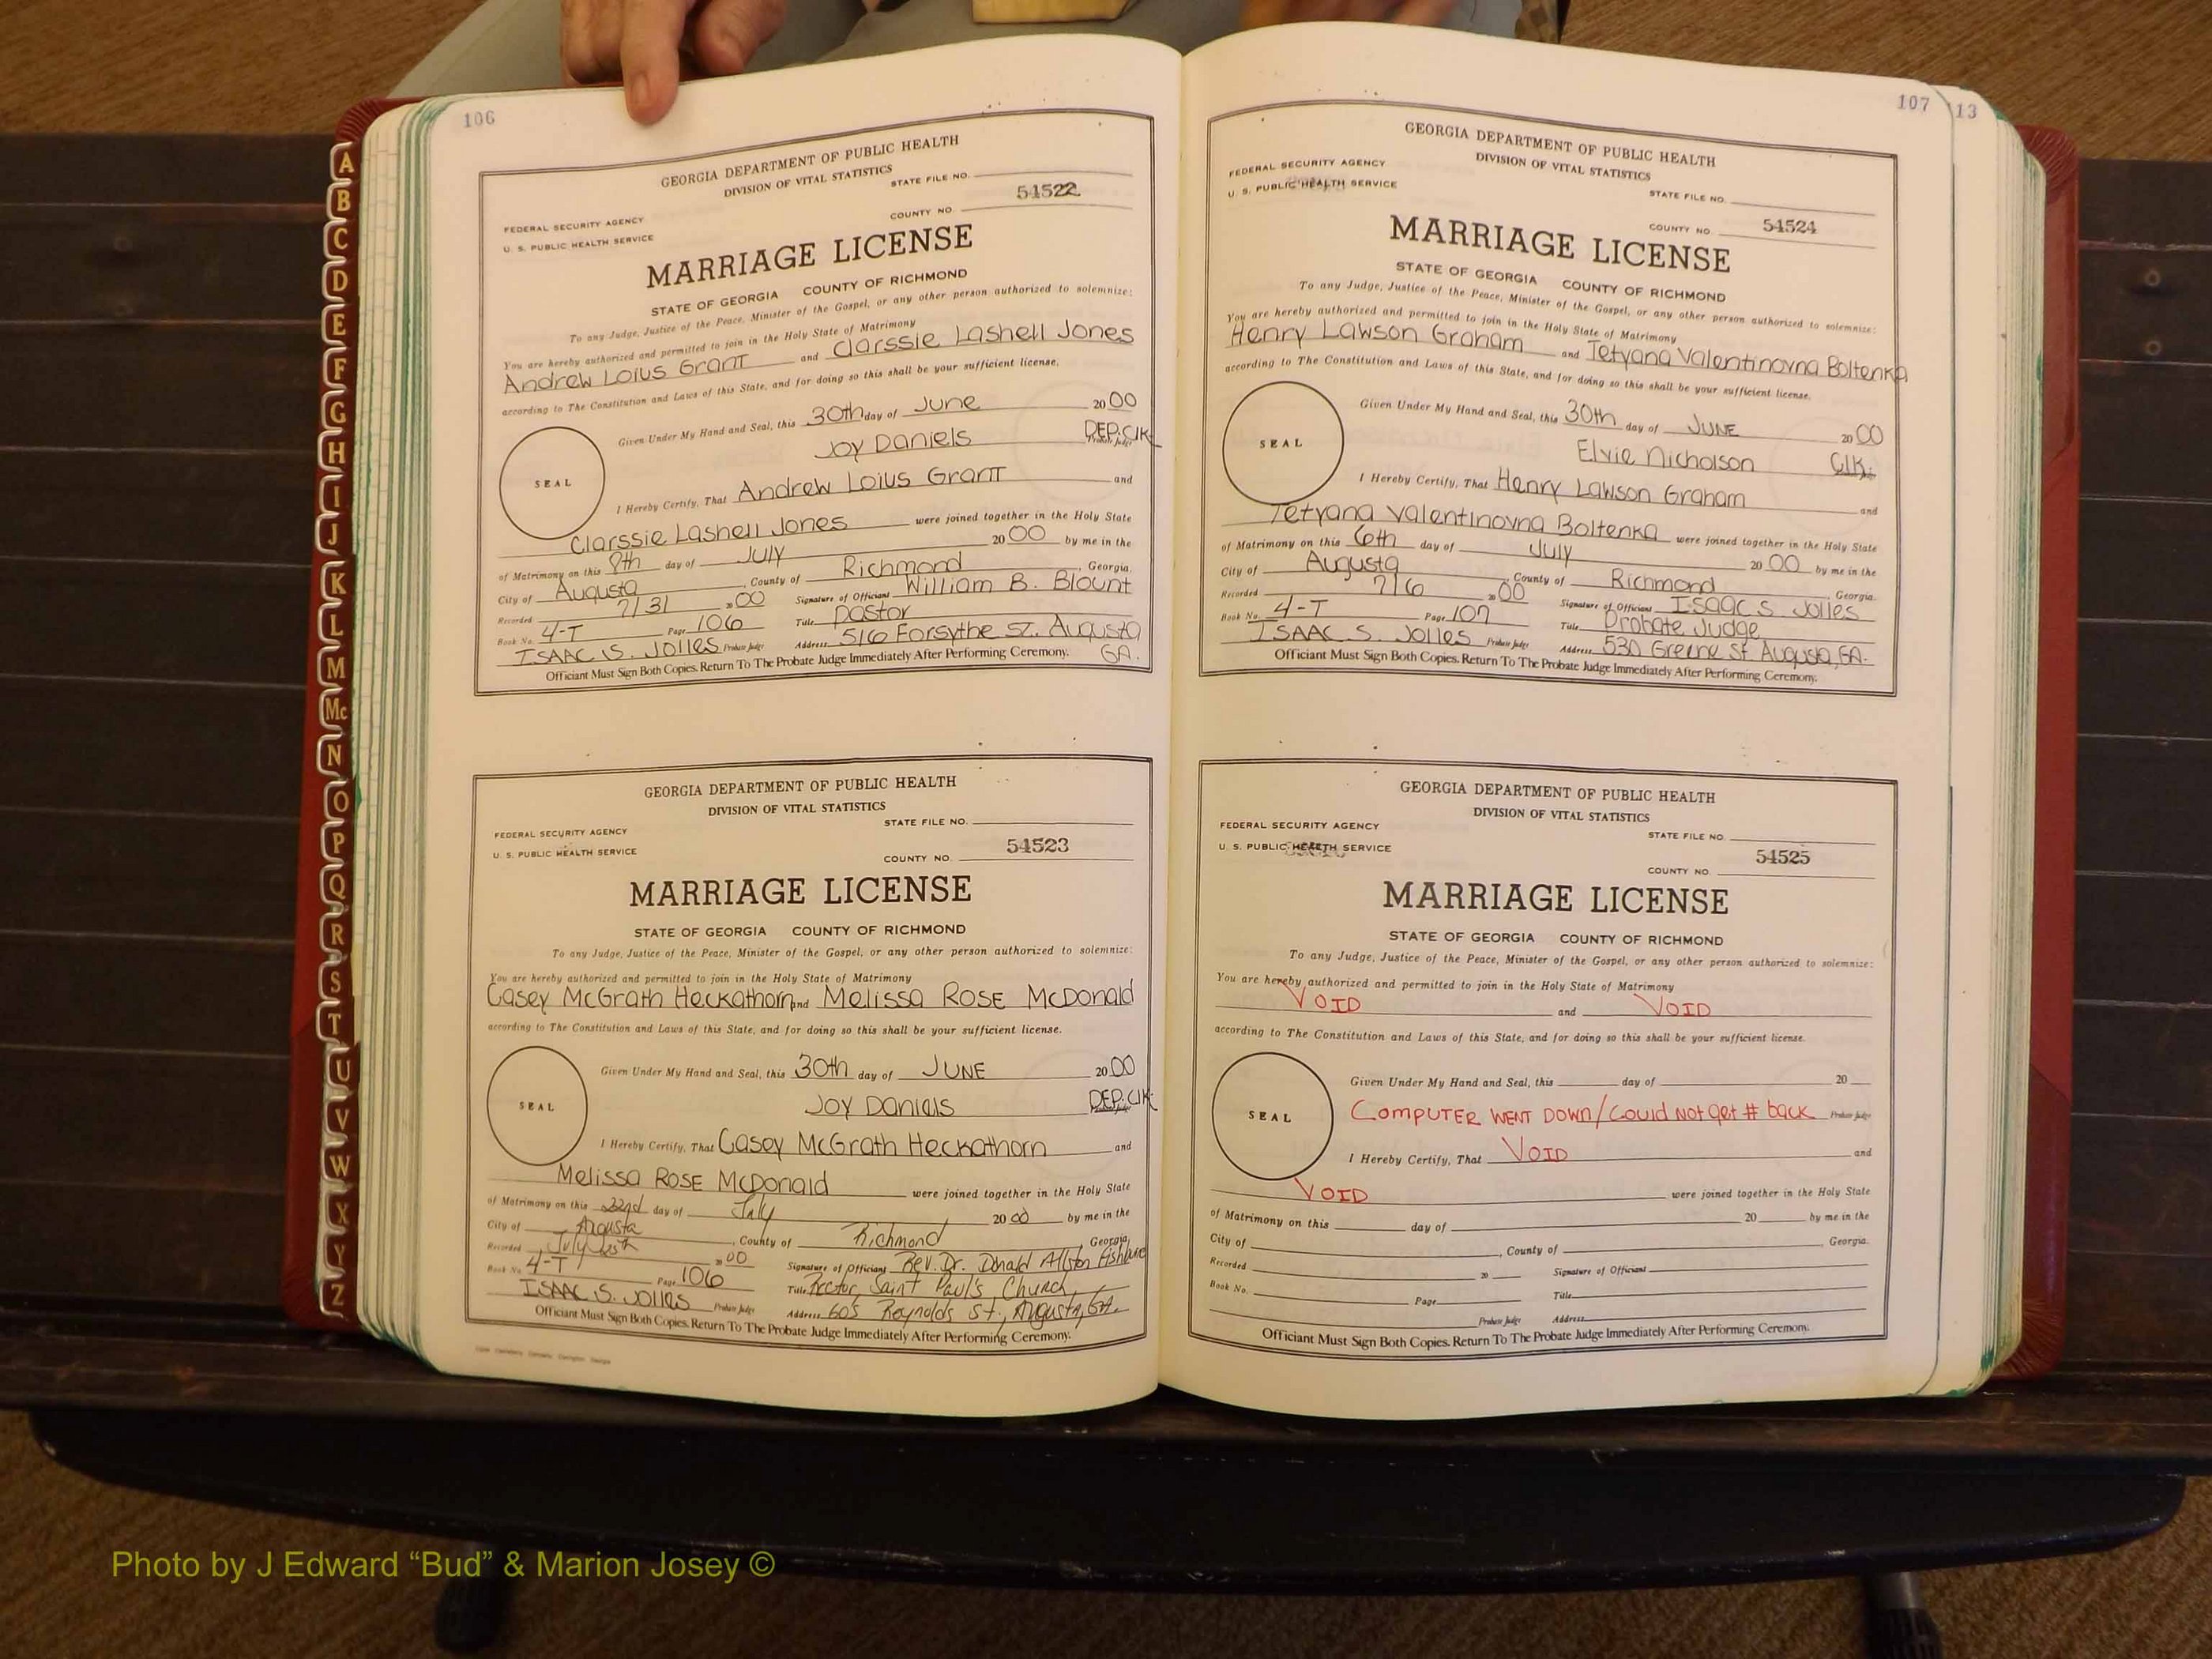 106
GEORGIA DEPARTMENT OF PUBLIC HEALTH
DIVISION OF VITAL STATISTICS
STATE FILE NO.
FEDERAL SECURITY AGENCY
U. S. PUBLIC HEALTH SERVICE
COUNTY NO. 54522
MARRIAGE LICENSE
STATE OF GEORGIA COUNTY OF RICHMOND
To any Judge, Justice of the Peace, Minister of the Gospel, or any other person authorized to solemnize:
You are hereby authorized and permitted to join in the Holy State of Matrimony
Andrew Loius Grant and Clarssie Lashell Jones
according to The Constitution and Laws of this State, and for doing so this shall be your sufficient license.
Given Under My Hand and Seal, this 30th day of June 20 00
Joy Daniels DEP. Clk Probate Judge
SEAL
I Hereby Certify, That Andrew Loius Grant and
Clarssie Lashell Jones were joined together in the Holy State
of Matrimony on this 8th day of July 20 00 by me in the
City of Augusta, County of Richmond, Georgia.
Recorded 7/31 20 00 Signature of Officiant William B. Blount
Book No. 4-T Page 106 Title Pastor
ISAAC S. Jolles Probate Judge Address 516 Forsythe St. Augusta GA.
Officiant Must Sign Both Copies. Return To The Probate Judge Immediately After Performing Ceremony.
GEORGIA DEPARTMENT OF PUBLIC HEALTH
DIVISION OF VITAL STATISTICS
STATE FILE NO.
FEDERAL SECURITY AGENCY
U. S. PUBLIC HEALTH SERVICE
COUNTY NO. 54523
MARRIAGE LICENSE
STATE OF GEORGIA COUNTY OF RICHMOND
To any Judge, Justice of the Peace, Minister of the Gospel, or any other person authorized to solemnize:
You are hereby authorized and permitted to join in the Holy State of Matrimony
Casey McGrath Heckathorn and Melissa Rose McDonald
according to The Constitution and Laws of this State, and for doing so this shall be your sufficient license.
Given Under My Hand and Seal, this 30th day of JUNE 20 00
Joy Daniels DEP. Clk Probate Judge
SEAL
I Hereby Certify, That Casey McGrath Heckathorn and
Melissa Rose McDonald were joined together in the Holy State
of Matrimony on this 22nd day of July 20 00 by me in the
City of Augusta, County of Richmond, Georgia.
Recorded July 25th 20 00 Signature of Officiant Rev. Dr. Donald Allston Fishburne
Book No. 4-T Page 106 Title Rector, Saint Paul's Church,
ISAAC S. Jolles Probate Judge Address 605 Reynolds St., Augusta, GA.
Officiant Must Sign Both Copies. Return To The Probate Judge Immediately After Performing Ceremony.
107
13
GEORGIA DEPARTMENT OF PUBLIC HEALTH
DIVISION OF VITAL STATISTICS
FEDERAL SECURITY AGENCY
U. S. PUBLIC HEALTH SERVICE
STATE FILE NO.
COUNTY NO. 54524
MARRIAGE LICENSE
STATE OF GEORGIA COUNTY OF RICHMOND
To any Judge, Justice of the Peace, Minister of the Gospel, or any other person authorized to solemnize:
You are hereby authorized and permitted to join in the Holy State of Matrimony
Henry Lawson Graham and Tetyana Valentinovna Boltenka
according to The Constitution and Laws of this State, and for doing so this shall be your sufficient license.
Given Under My Hand and Seal, this 30th day of JUNE 20 00
Elvie Nicholson Clk.
SEAL
I Hereby Certify, That Henry Lawson Graham and
Tetyana Valentinovna Boltenka were joined together in the Holy State
of Matrimony on this 6th day of July 20 00 by me in the
City of Augusta, County of Richmond, Georgia.
Recorded 7/6 20 00 Signature of Officiant Isaac S. Jolles
Book No. 4-T Page 107 Title Probate Judge
ISAAC S. Jolles Probate Judge Address 530 Greene St Augusta, GA.
Officiant Must Sign Both Copies. Return To The Probate Judge Immediately After Performing Ceremony.
GEORGIA DEPARTMENT OF PUBLIC HEALTH
DIVISION OF VITAL STATISTICS
FEDERAL SECURITY AGENCY
U. S. PUBLIC HEALTH SERVICE
STATE FILE NO.
COUNTY NO. 54525
MARRIAGE LICENSE
STATE OF GEORGIA COUNTY OF RICHMOND
To any Judge, Justice of the Peace, Minister of the Gospel, or any other person authorized to solemnize:
You are hereby authorized and permitted to join in the Holy State of Matrimony
VOID and VOID
according to The Constitution and Laws of this State, and for doing so this shall be your sufficient license.
Given Under My Hand and Seal, this day of 20
Computer went down/could not get # back Probate Judge
SEAL
I Hereby Certify, That VOID and
VOID were joined together in the Holy State
of Matrimony on this day of 20 by me in the
City of , County of Georgia.
Recorded 20 Signature of Officiant
Book No. Page Title
Probate Judge Address
Officiant Must Sign Both Copies. Return To The Probate Judge Immediately After Performing Ceremony.
A
B
C
D
E
F
G
H
I
J
K
L
M
Mc
N
O
P
Q
R
S
T
U
V
W
X
Y
Z
Photo by J Edward “Bud” & Marion Josey ©